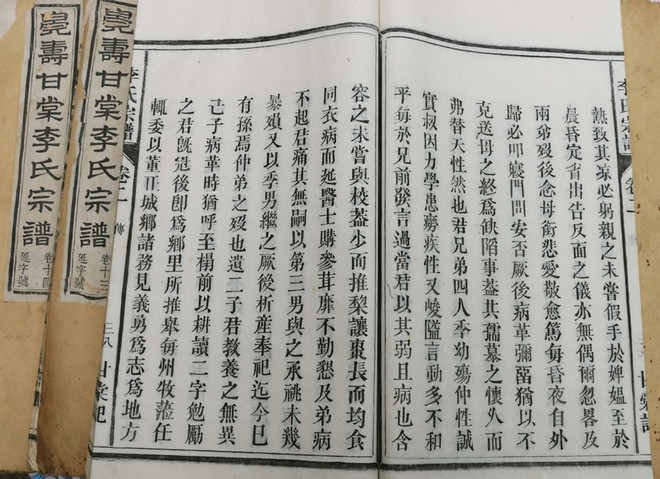 熱致其涼必躬親之未嘗假手於婢媼至於
晨昏定省出告反面之儀亦無偶爾忽畧及
兩弟歿後念母銜悲愛敬愈篤每昏夜自外
歸必叩寢門問安否厥後病革彌留猶以不
克送母之終為缺陷事葢其孺慕之懷久而
弗替天性然也君兄弟四人季幼殤仲性誠
實叔因力學患癆疾性又峻隘言動多不和
平每於兄前發言過當君以其弱且病也含
容之未嘗與校葢少而推梨讓棗長而均食
同衣病而延醫士購參茸靡不勤懇及弟病
不起君痛其無嗣以第三男與之承祧未幾
暴殞又以季男繼之厥後析產奉祀迄今已
有孫焉仲弟之歿也遺二子君教養之無異
己子病革時猶呼至榻前以耕讀二字勉勵
之君旣冠後卽為鄉里所推舉每州牧蒞任
輒委以董正城鄉諸務見義勇為志為地方
李氏宗譜 傳 三八
壽甘棠李氏宗譜 卷十三 字號
壽甘棠李氏宗譜 卷十四 字號